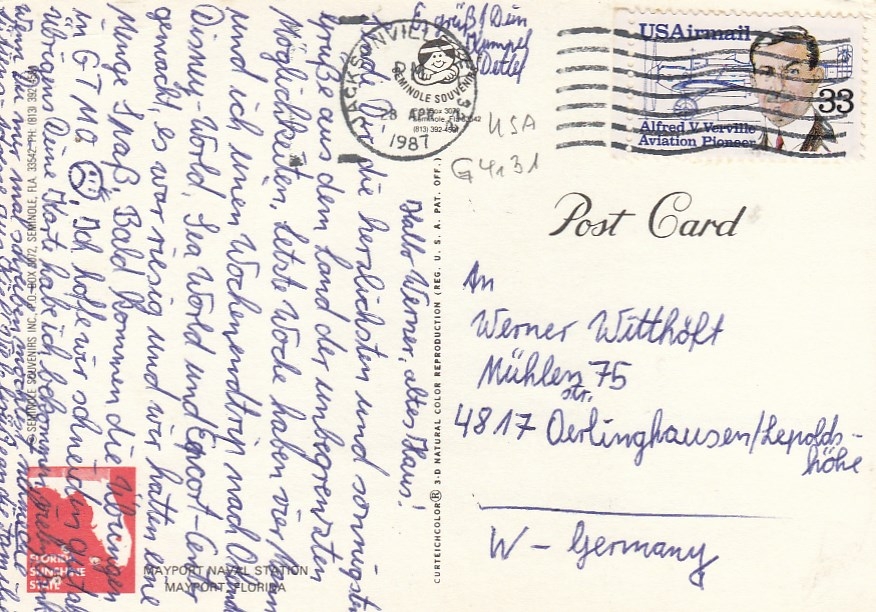 Hallo Werner, altes Haus!
Sende Dir die herzlichsten und sonnigsten
Grüße aus dem Land der unbegrenzten
Möglichkeiten, letzte Woche haben vier Mann
und ich einen Wochenendtrip nach
Disney-World, Sea World und Epcot-Center
gemacht, es war riesig und wir hatten eine
Menge Spaß. Bald kommen die übrigen
in GTMO, Ich hoffe wir schneiden gut ab
Übrigens Deine Karte habe ich bekommen,
Wenn Du mir mal schreiben möchtest,
Es grüßt Dein
Kumpel
Detlef
© SEMINOLE SOUVENIRS INC., P.O. BOX 3072, SEMINOLE, FLA. 33542 PH: (813) 392-4591
FLORIDA
SUNSHINE
STATE
MAYPORT NAVAL STATION
MAYPORT, FLORIDA
CURTEICHCOLOR® 3-D NATURAL COLOR REPRODUCTION (REG. U. S. A. PAT. OFF.)
JACKSONVILLE
28 APR
1987
SEMINOLE SOUVENIRS
Box 3072
Seminole, Fla. 33542
(813) 392-4591
USA
G4131
USAirmail
33
Alfred V. Verville
Aviation Pioneer
Post Card
An
Werner Witthöft
Mühlenstr. 75
4817 Oerlinghausen/Lepolds-
höhe
W - Germany